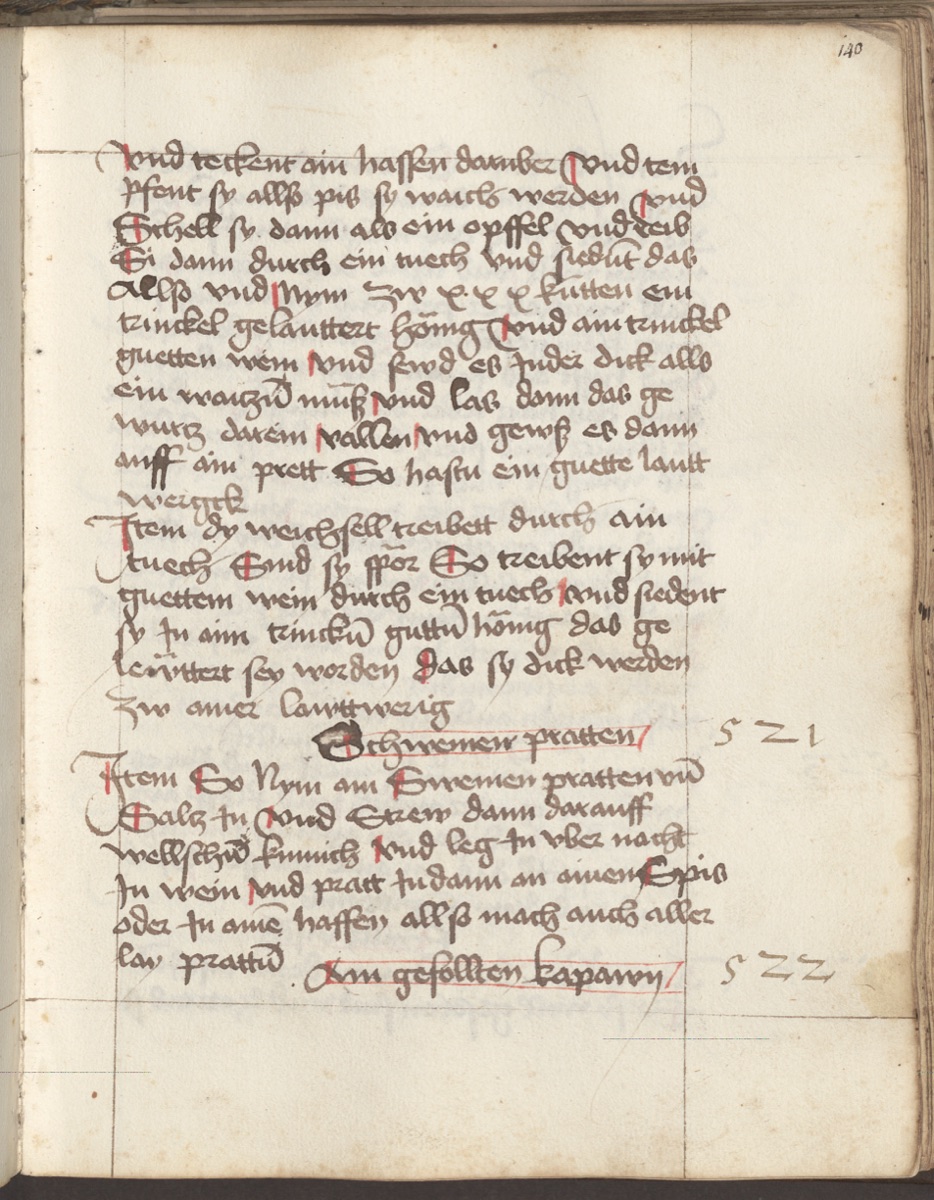 140
Vnd teckent ain haffen daruber Vnd tem
pfent sy allso pis sy waich werden Vnd
Schell sy dann als ein opffel vnd reib
Si dann durch ein tuech vnd siedn̄t das
Allso vnd Nym zw x x x kütten ein
trinckel gelauttert hönig Vnd ain trinckel
guetten wein Vnd sewd es Inder dick alls
ein waitzn̄ mūß Vnd las dann das ge
wurtz darein vallen Vnd gewß es dann
auff ain prett So hastu ein guette lautt
wergck
Item dy weichsell treibett durch ain
tuech Sind sy spör So treibent sy mit
guettem wein durch ein tuech Vnd siedent
sy In aim trinckn̄ guttn̄ hönig das ge
lewttert sey worden das sy dick werden
zw ainer lawttwerig
Schweinen pratten 521
Item So Nym ain Sweinen pratten vn̄
Saltz In Vnd Strew dann darauff
wellschn̄ kumich Vnd leg In vber nacht
In wein Vnd pratt In dann an ainen Spis
oder In ainē haffen allso mach auch aller
lay prattn̄
Ain gefollten kapawn 522